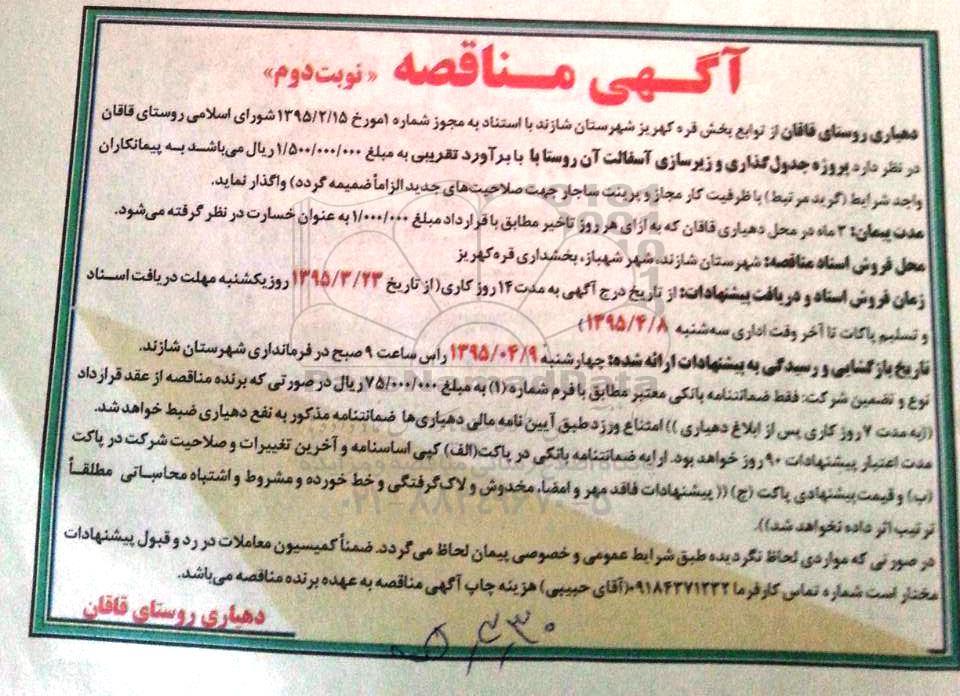 آگهی مناقصه «نوبت دوم»
دهیاری روستای قاقان از توابع بخش قره کهریز شهرستان شازند با استناد به مجوز شماره ۱مورخ ۱۳۹۵/۲/۱۵ شورای اسلامی روستای قاقان
در نظر دارد پروژه جدول گذاری و زیرسازی آسفالت آن روستا با با برآورد تقریبی به مبلغ ۱/۵۰۰/۰۰۰/۰۰۰ ریال می‌باشد به پیمانکاران
واجد شرایط (گرید مرتبط) با ظرفیت کار مجاز و پرینت ساجار جهت صلاحیت‌های جدید الزاماً ضمیمه گردد) واگذار نماید.
مدت پیمان: ۳ ماه در محل دهیاری قاقان که به ازای هر روز تاخیر مطابق با قرارداد مبلغ ۱/۰۰۰/۰۰۰ به عنوان خسارت در نظر گرفته می‌شود.
محل فروش اسناد مناقصه: شهرستان شازند، شهر شهباز، بخشداری قره‌کهریز
زمان فروش اسناد و دریافت پیشنهادات: از تاریخ درج آگهی به مدت ۱۴ روز کاری( از تاریخ ۱۳۹۵/۳/۲۳ روز یکشنبه مهلت دریافت اسناد
و تسلیم پاکات تا آخر وقت اداری سه‌شنبه ۱۳۹۵/۴/۸ )
تاریخ بازگشایی و رسیدگی به پیشنهادات ارائه شده: چهارشنبه ۱۳۹۵/۰۴/۹ راس ساعت ۹ صبح در فرمانداری شهرستان شازند.
نوع و تضمین شرکت: فقط ضمانتنامه بانکی معتبر مطابق با فرم شماره (۱) به مبلغ ۷۵/۰۰۰/۰۰۰ ریال در صورتی که برنده مناقصه از عقد قرارداد
((به مدت ۷ روز کاری پس از ابلاغ دهیاری )) امتناع ورزد طبق آیین نامه مالی دهیاری‌ها ضمانتنامه مذکور به نفع دهیاری ضبط خواهد شد.
مدت اعتبار پیشنهادات ۹۰ روز خواهد بود. ارایه ضمانتنامه بانکی در پاکت(الف) کپی اساسنامه و آخرین تغییرات و صلاحیت شرکت در پاکت
(ب) و قیمت پیشنهادی پاکت (ج) (( پیشنهادات فاقد مهر و امضا، مخدوش و لاک گرفتگی و خط خورده و مشروط و اشتباه محاسباتی مطلقاً
ترتیب اثر داده نخواهد شد)).
در صورتی که مواردی لحاظ نگردیده طبق شرایط عمومی و خصوصی پیمان لحاظ می‌گردد. ضمناً کمیسیون معاملات در رد و قبول پیشنهادات
مختار است شماره تماس کارفرما ۰۹۱۸۴۳۷۱۲۳۲(آقای حبیبی) هزینه چاپ آگهی مناقصه به عهده برنده مناقصه می‌باشد.
دهیاری روستای قاقان
ParsNamadData
۰۲۱-۸۸۳۴۹۶۷۰-۵